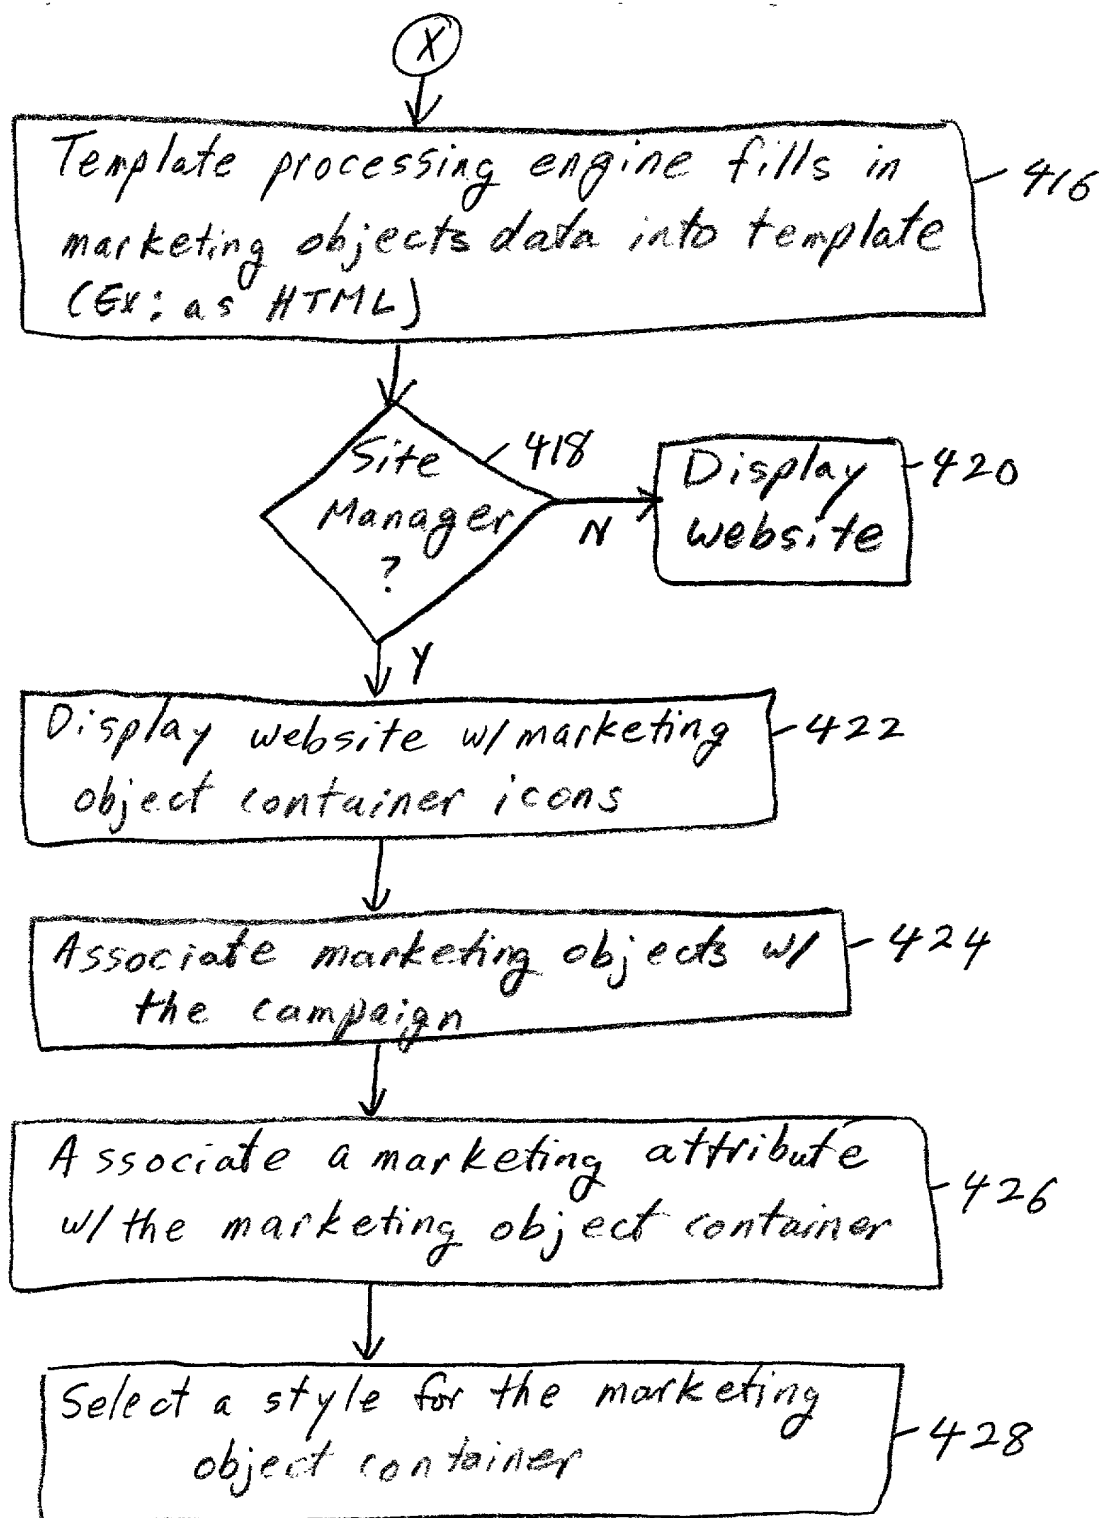 X
Template processing engine fills in
marketing objects data into template
(Ex: as HTML)
416
Site
Manager
?
418
N
Display
website
420
Y
Display website w/marketing
object container icons
422
Associate marketing objects w/
the campaign
424
Associate a marketing attribute
w/ the marketing object container
426
Select a style for the marketing
object container
428